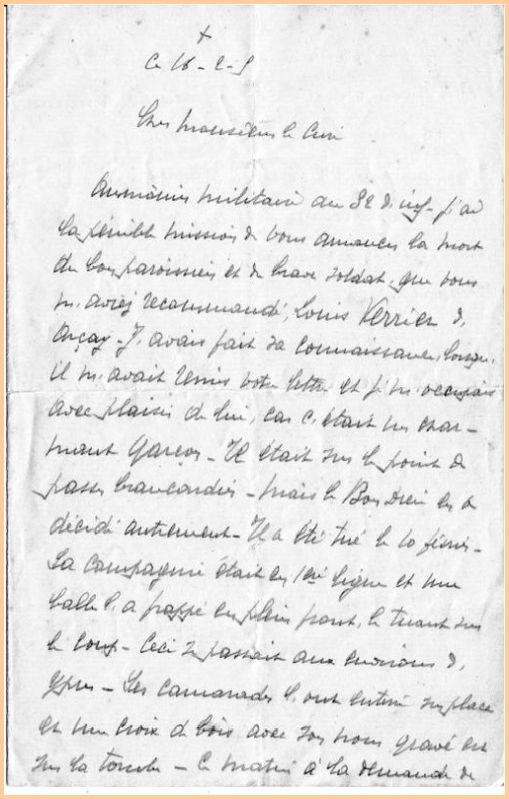 +
Ce 16 - 2 - 5
Cher Monsieur le Curé
Aumônier militaire du 32 d'inf. j'ai
la pénible mission de vous annoncer la mort
du bon paroissien et du brave soldat, que vous
m'aviez recommandé, Louis Verrier d'
Arçay - J'avais fait sa connaissance, lorsqu'
il m'avait remis votre lettre et je m'occupais
avec plaisir de lui, car c'était un char-
mant garçon - Il était sur le point de
passer brancardier - mais le Bon Dieu en a
décidé autrement - Il a été tué le 10 février -
Sa compagnie était en 1ère ligne et une
balle l'a frappé en plein front, le tuant sur
le coup - Ceci se passait aux environs d'
Ypres - Ses camarades l'ont enterré sur place
et une croix de bois avec son nom gravé est
sur la tombe - Ce matin à la demande de